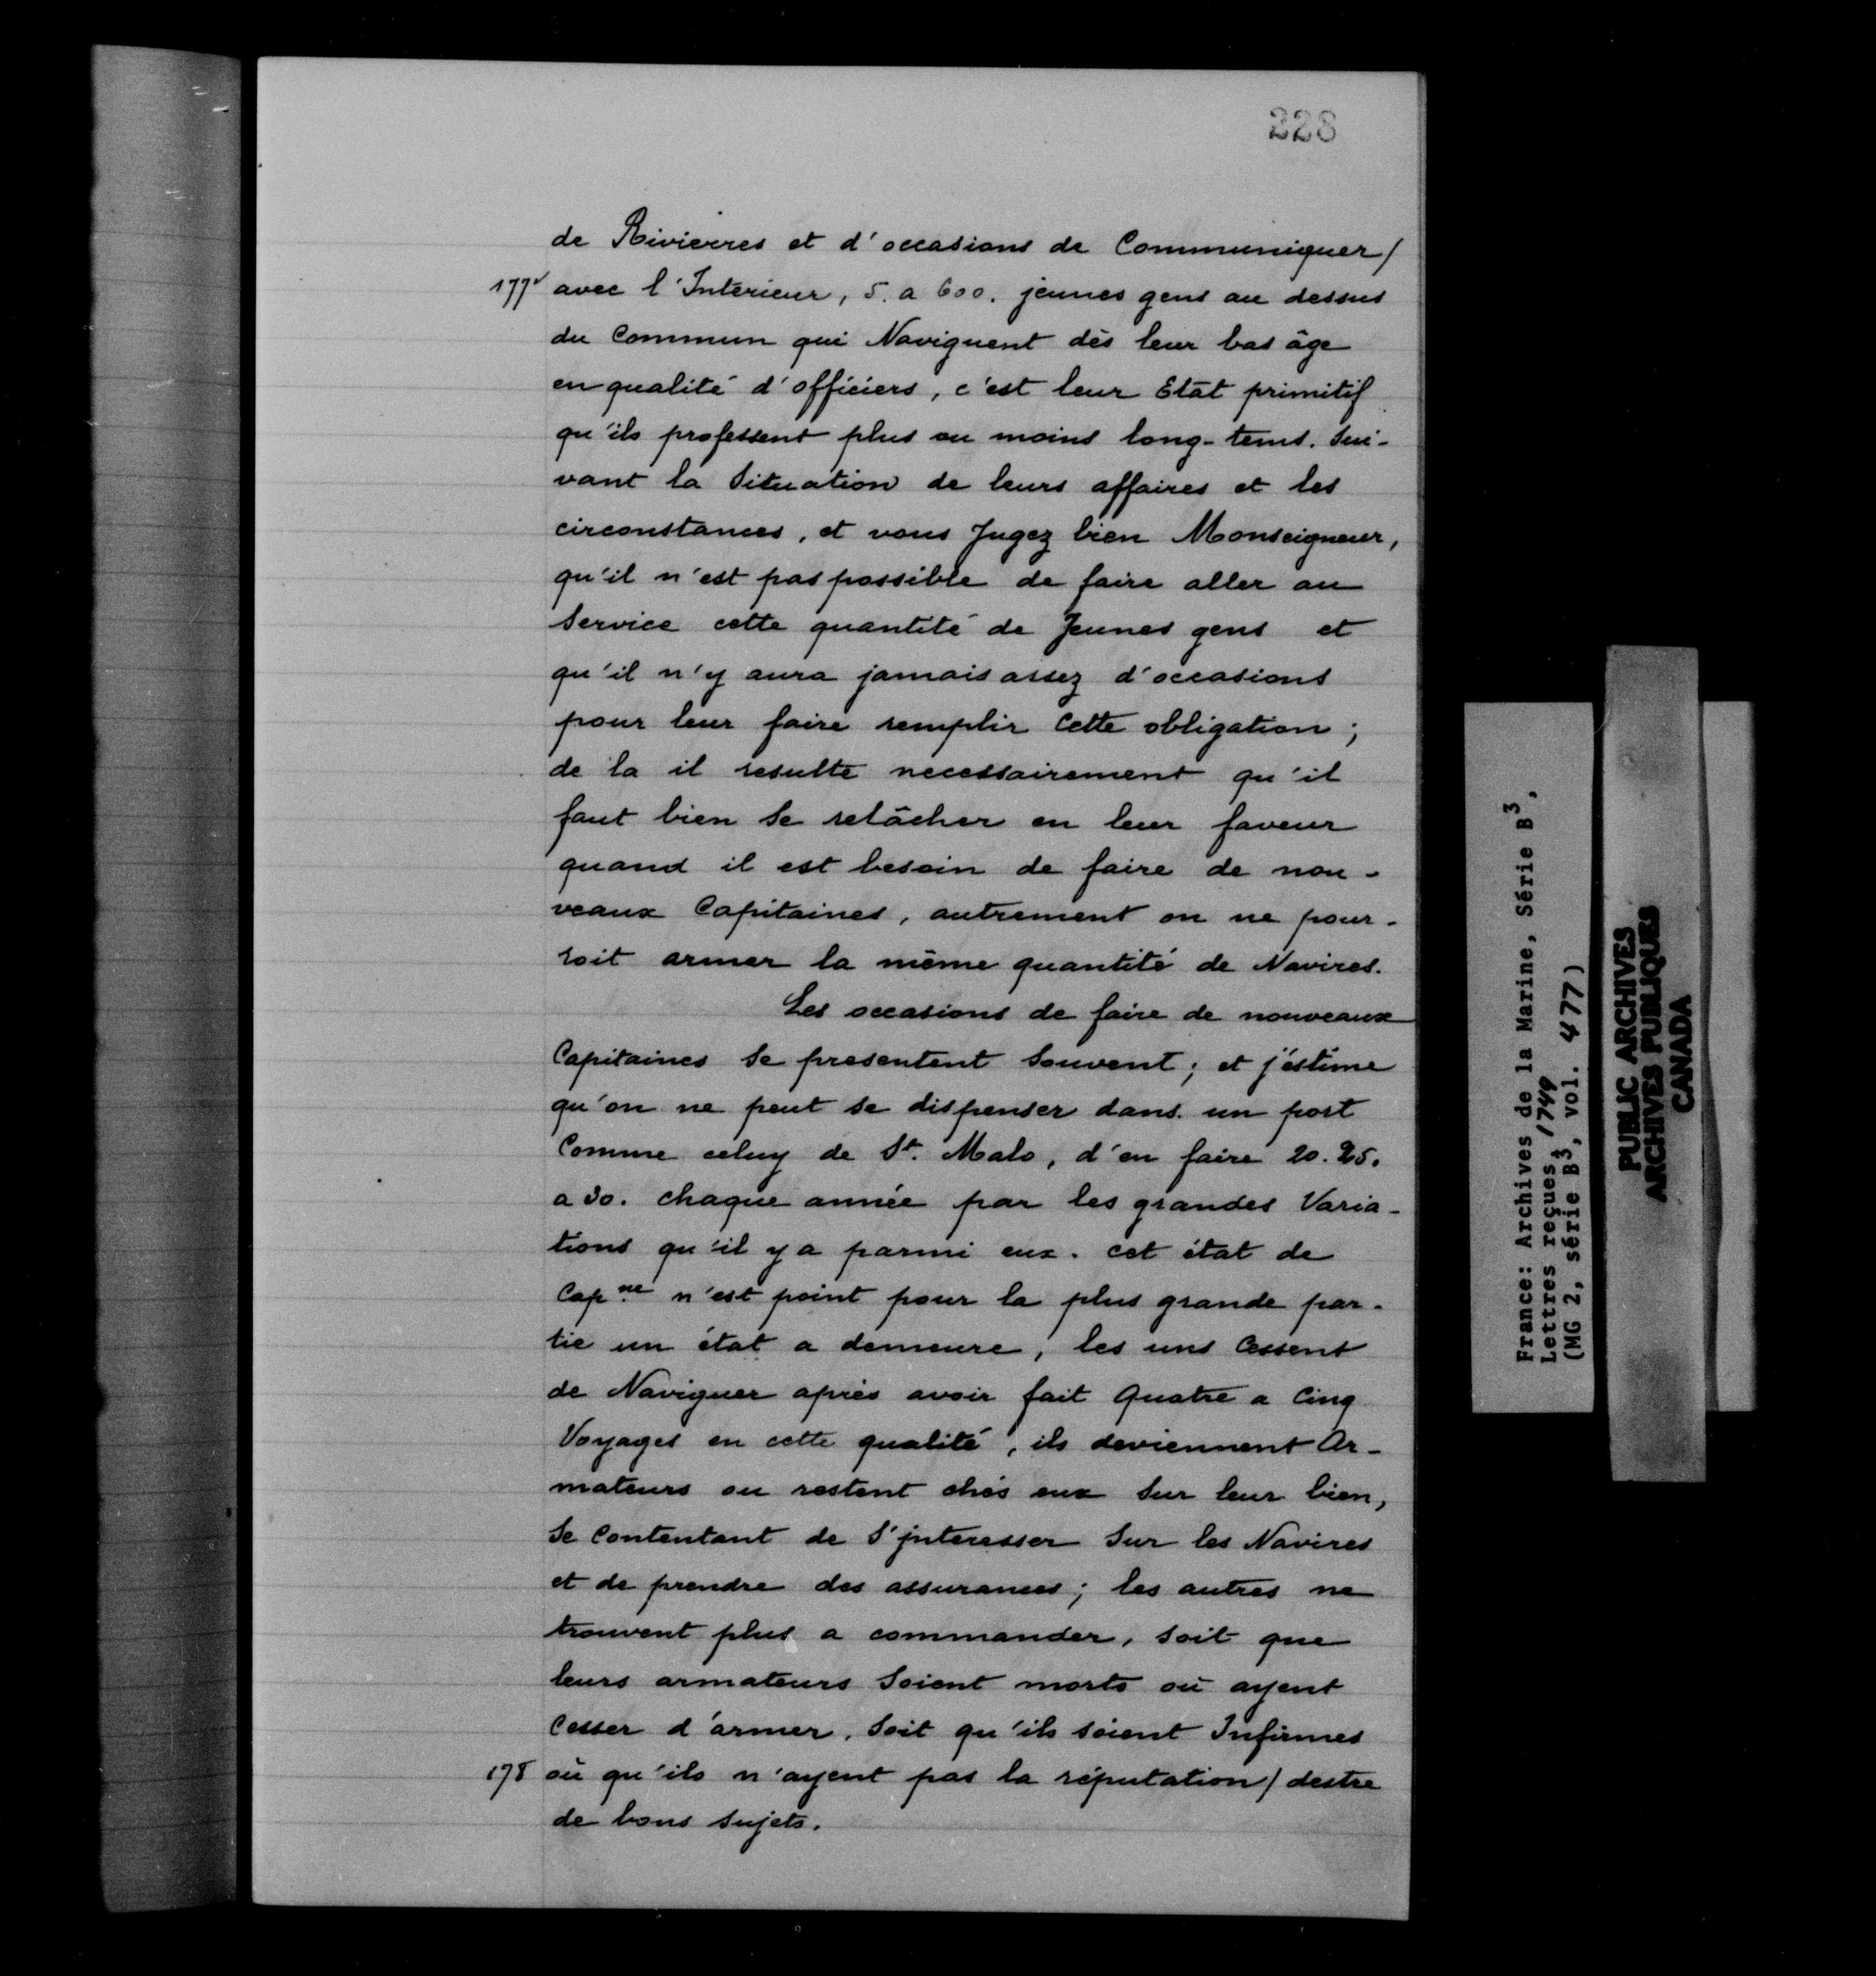 228
de Rivierres et d'occasions de Communiquer/
177v avec l'Interieur, 5. a 600. jeunes gens au dessus
du Commun qui Naviguent dès leur bas âge
en qualité d'officiers, c'est leur Etat primitif
qu'ils professent plus ou moins long-tems. Sui-
vant la Situation de leurs affaires et les
circonstances, et vous Jugez bien Monseigneur,
qu'il n'est pas possible de faire aller au
Service cette quantité de Jeunes gens et
qu'il n'y aura jamais assez d'occasions
pour leur faire remplir Cette obligation;
de la il resulte necessairement qu'il
faut bien Se relâcher en leur faveur
quand il est besoin de faire de nou-
veaux Capitaines, autrement on ne pour-
roit armer la même quantité de Navires.
Les occasions de faire de nouveaux
Capitaines Se presentent Souvent; et j'éstime
qu'on ne peut se dispenser dans un port
Comme celuy de St. Malo, d'en faire 20. 25.
a 30. chaque année par les grandes Varia-
tions qu'il y a parmi eux. cet état de
Cap.ne n'est point pour la plus grande par-
tie un état a demeure, les uns Cessent
de Naviguer après avoir fait Quatre a Cinq
Voyages en cette qualité, ils deviennent Ar-
mateurs ou restent chés eux Sur leur bien,
Se Contentant de S'jnteresser Sur les Navires
et de prendre des assurances; les autres ne
trouvent plus a commander, soit que
leurs armateurs Soient morts où ayent
Cesser d'armer. Soit qu'ils soient Infirmes
178 où qu'ils n'ayent pas la réputation/destre
de bons Sujets.
France: Archives de la Marine, Série B3,
Lettres reçues, 1749
(MG 2, série B3, vol. 477)
PUBLIC ARCHIVES
ARCHIVES PUBLIQUES
CANADA